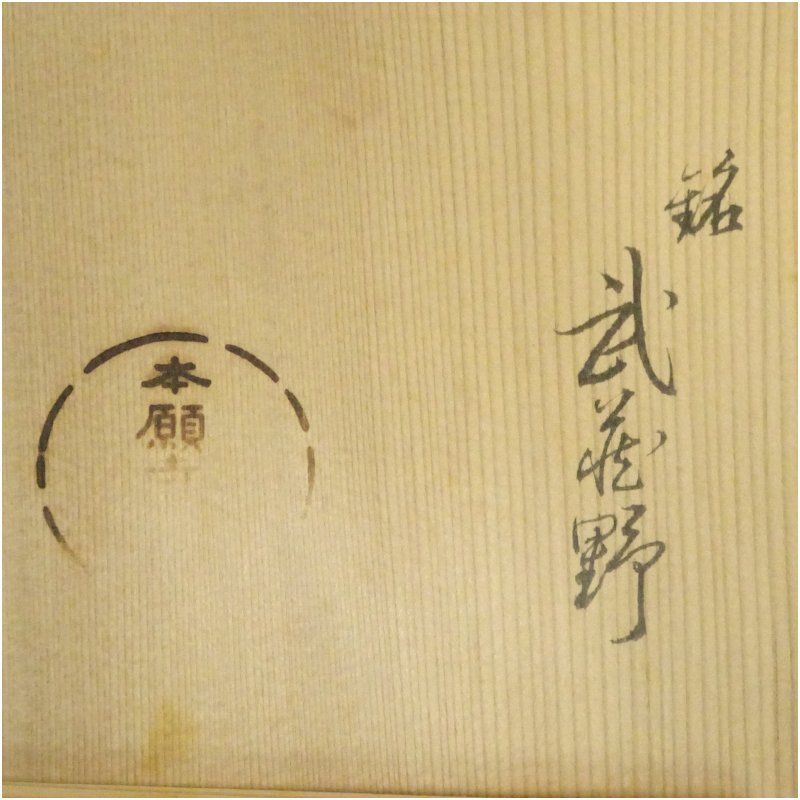 銘
武蔵野
本願寺